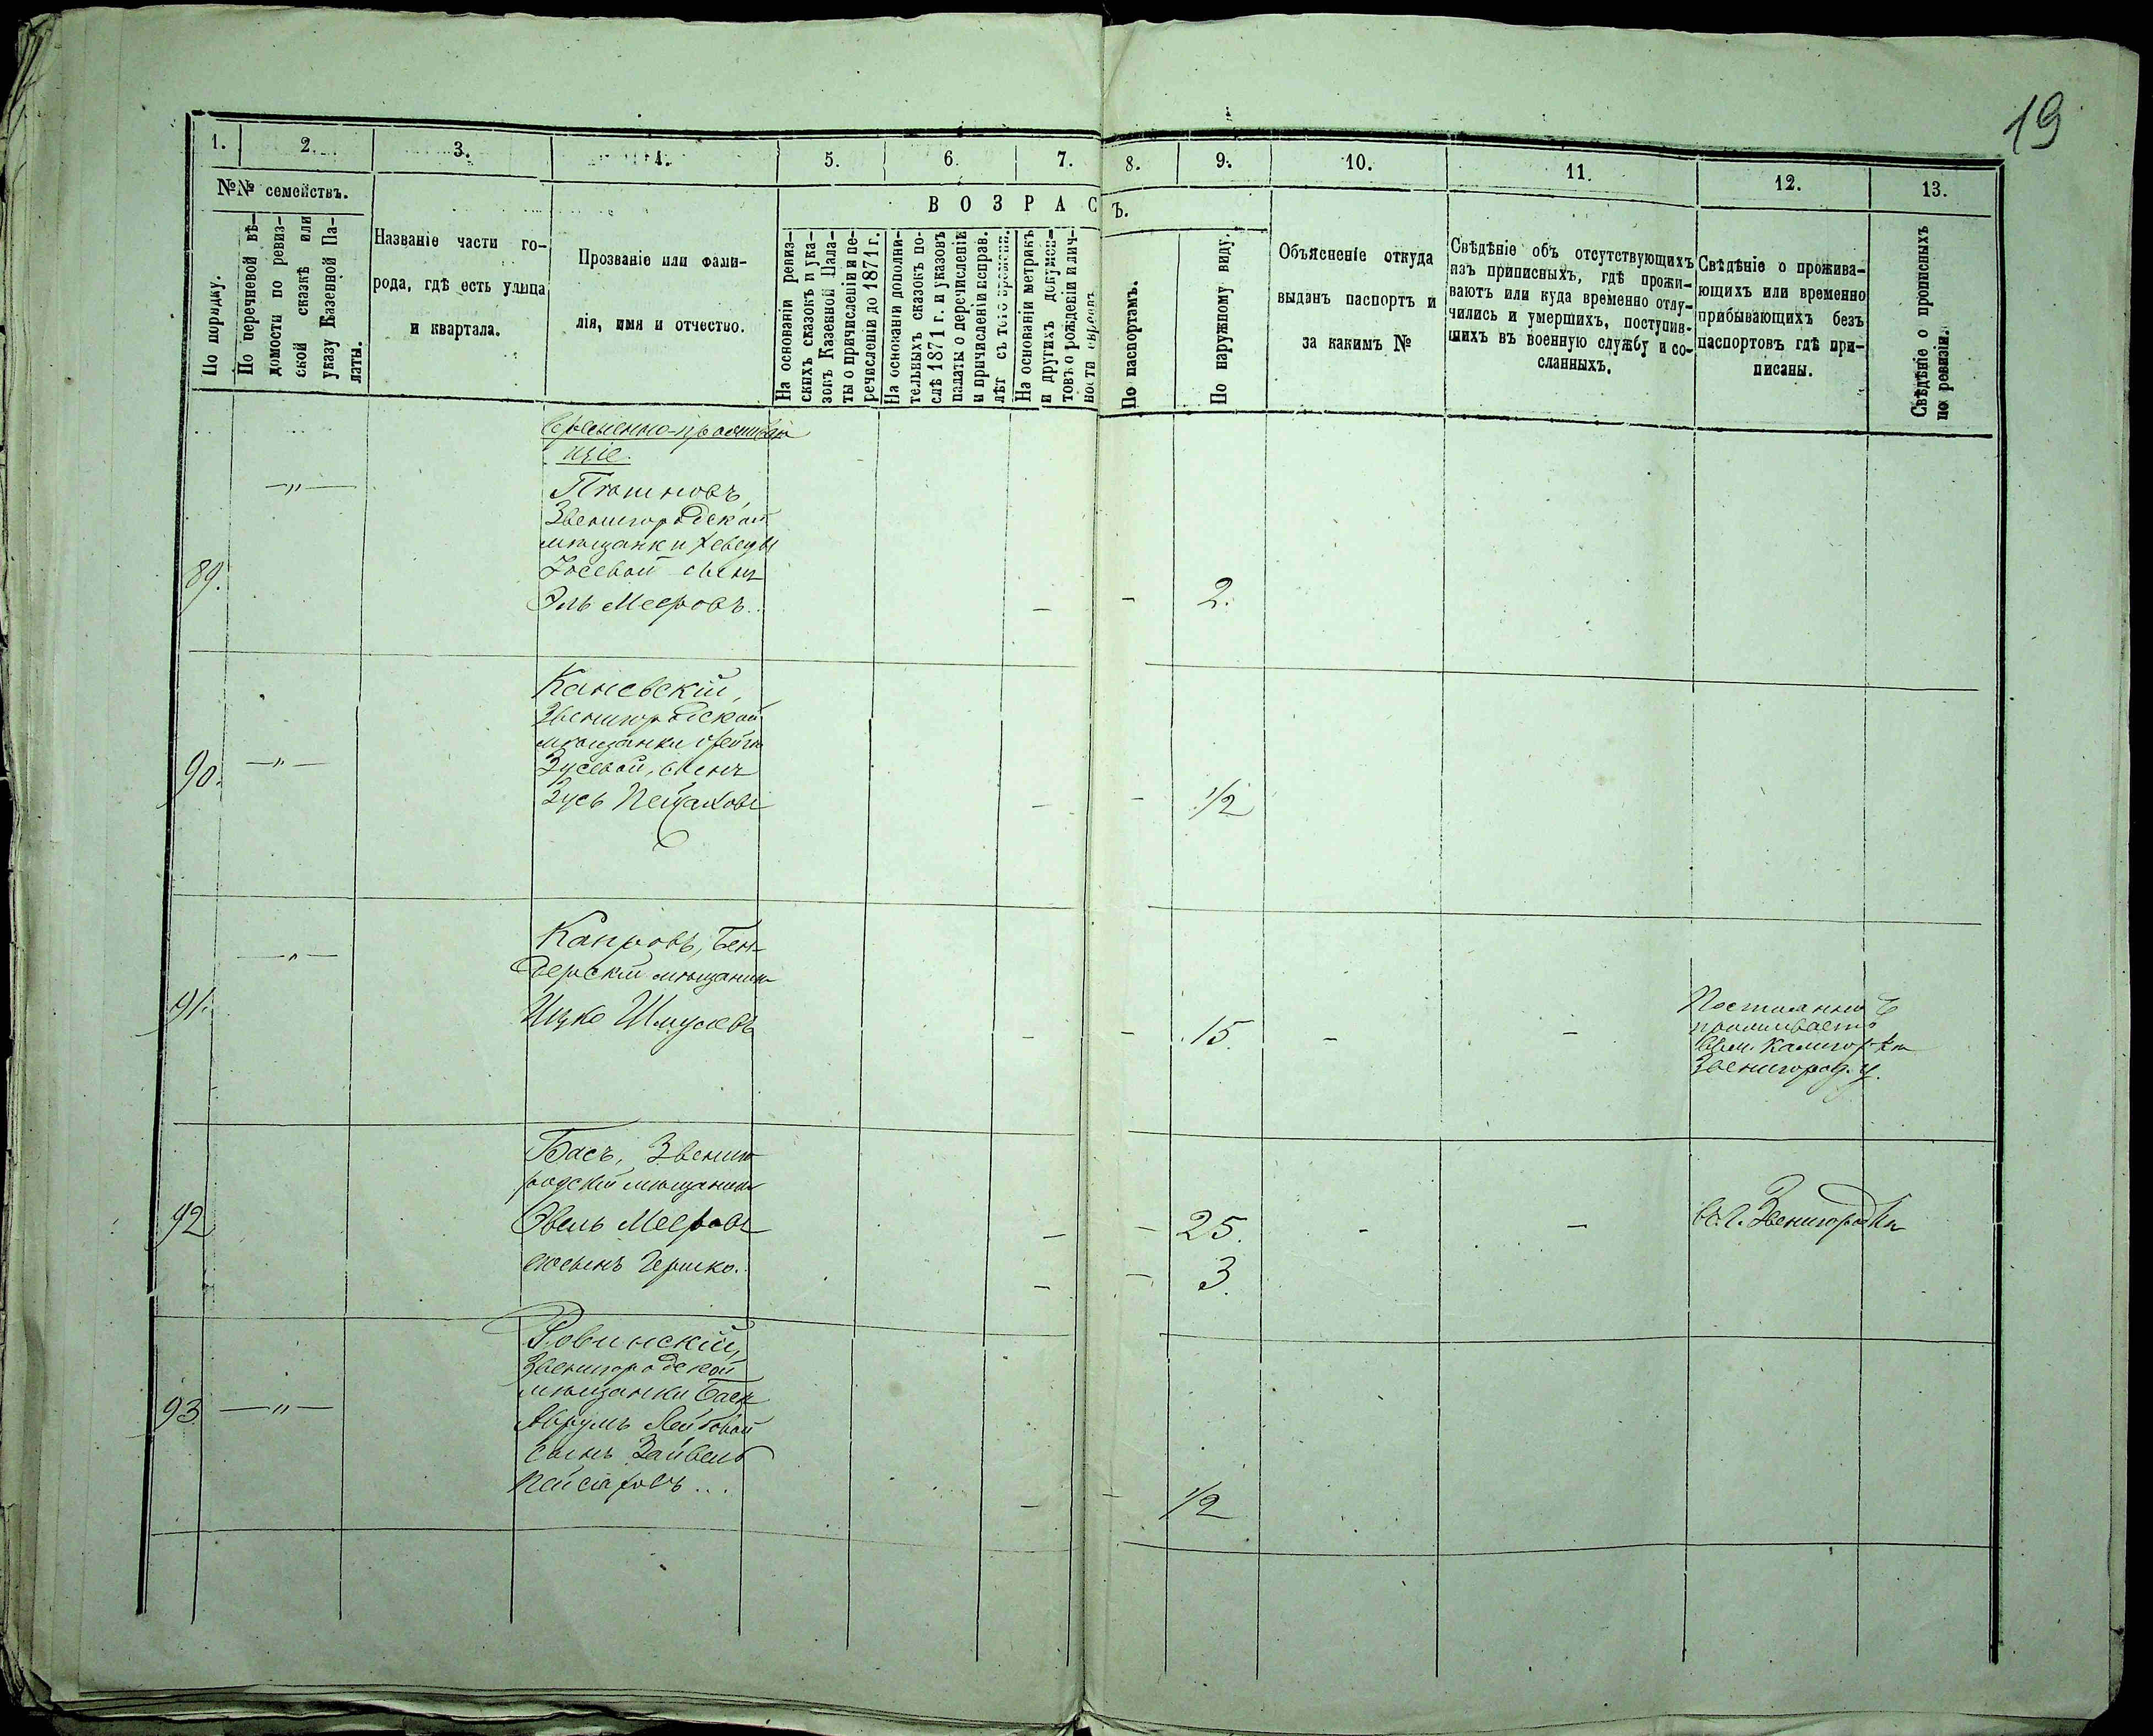 19
1. 2. 3. 4. 5. 6. 7. 8. 9. 10. 11. 12. 13.
№№ семействъ.
По порядку.
По перечневой вѣ-
домости по ревиз-
ской сказкѣ или
указу Казенной Па-
латы.
Названіе части го-
рода, гдѣ есть улица
и квартала.
Прозваніе или фами-
лія, имя и отчество.
ВОЗРАС
Ъ.
На основаніи ревиз-
скихъ сказокъ и ука-
зокъ Казенной Пала-
ты о причисленіи и пе-
речисленіи до 1871 г.
На основаніи дополни-
тельныхъ сказокъ по-
слѣ 1871 г. и указовъ
палаты о перечисленіи
и причисленіи исправ.
лѣт съ того времени.
На основаніи метрикъ
и другихъ докумен-
товъ о рожденіи и лич-
ности евреевъ
По паспортамъ.
По наружному виду.
Объясненіе откуда
выданъ паспортъ и
за какимъ №
Свѣдѣніе объ отсутствующихъ
изъ приписныхъ, гдѣ прожи-
ваютъ или куда временно отлу-
чились и умершихъ, поступив-
шихъ въ военную службу и со-
сланныхъ.
Свѣдѣніе о прожива-
ющихъ или временно
прибывающихъ безъ
паспортовъ гдѣ при-
писаны.
Свѣдѣніе о прописныхъ
по ревизіи.
Временно-прожива
щіе.
—„—
Звенигородской
мѣщанки
сынъ
89. Эль Мееровъ. — — 2.
Каневскій,
Звенигородской
мѣщанки
90. —„— Зусевой, сынъ
Зусь — — 1/2
—„— Капровъ, Бен-
дерскій мѣщанин
91. Ицко Шмулевъ — — 15. — —
Постоянно
проживаетъ
въ м. Калигоркѣ
Звенигород. у.
Басъ, Звениго
родскій мѣщанин
92 Овель Мееровъ — — 25. — — въ г. Звенигородкѣ
его сынъ Гершко. — — 3.
Ровинскій,
Звенигородской
мѣщанки Баси
93. —„— Аврумъ Лейбовой
сынъ Зайвель
— — 1/2